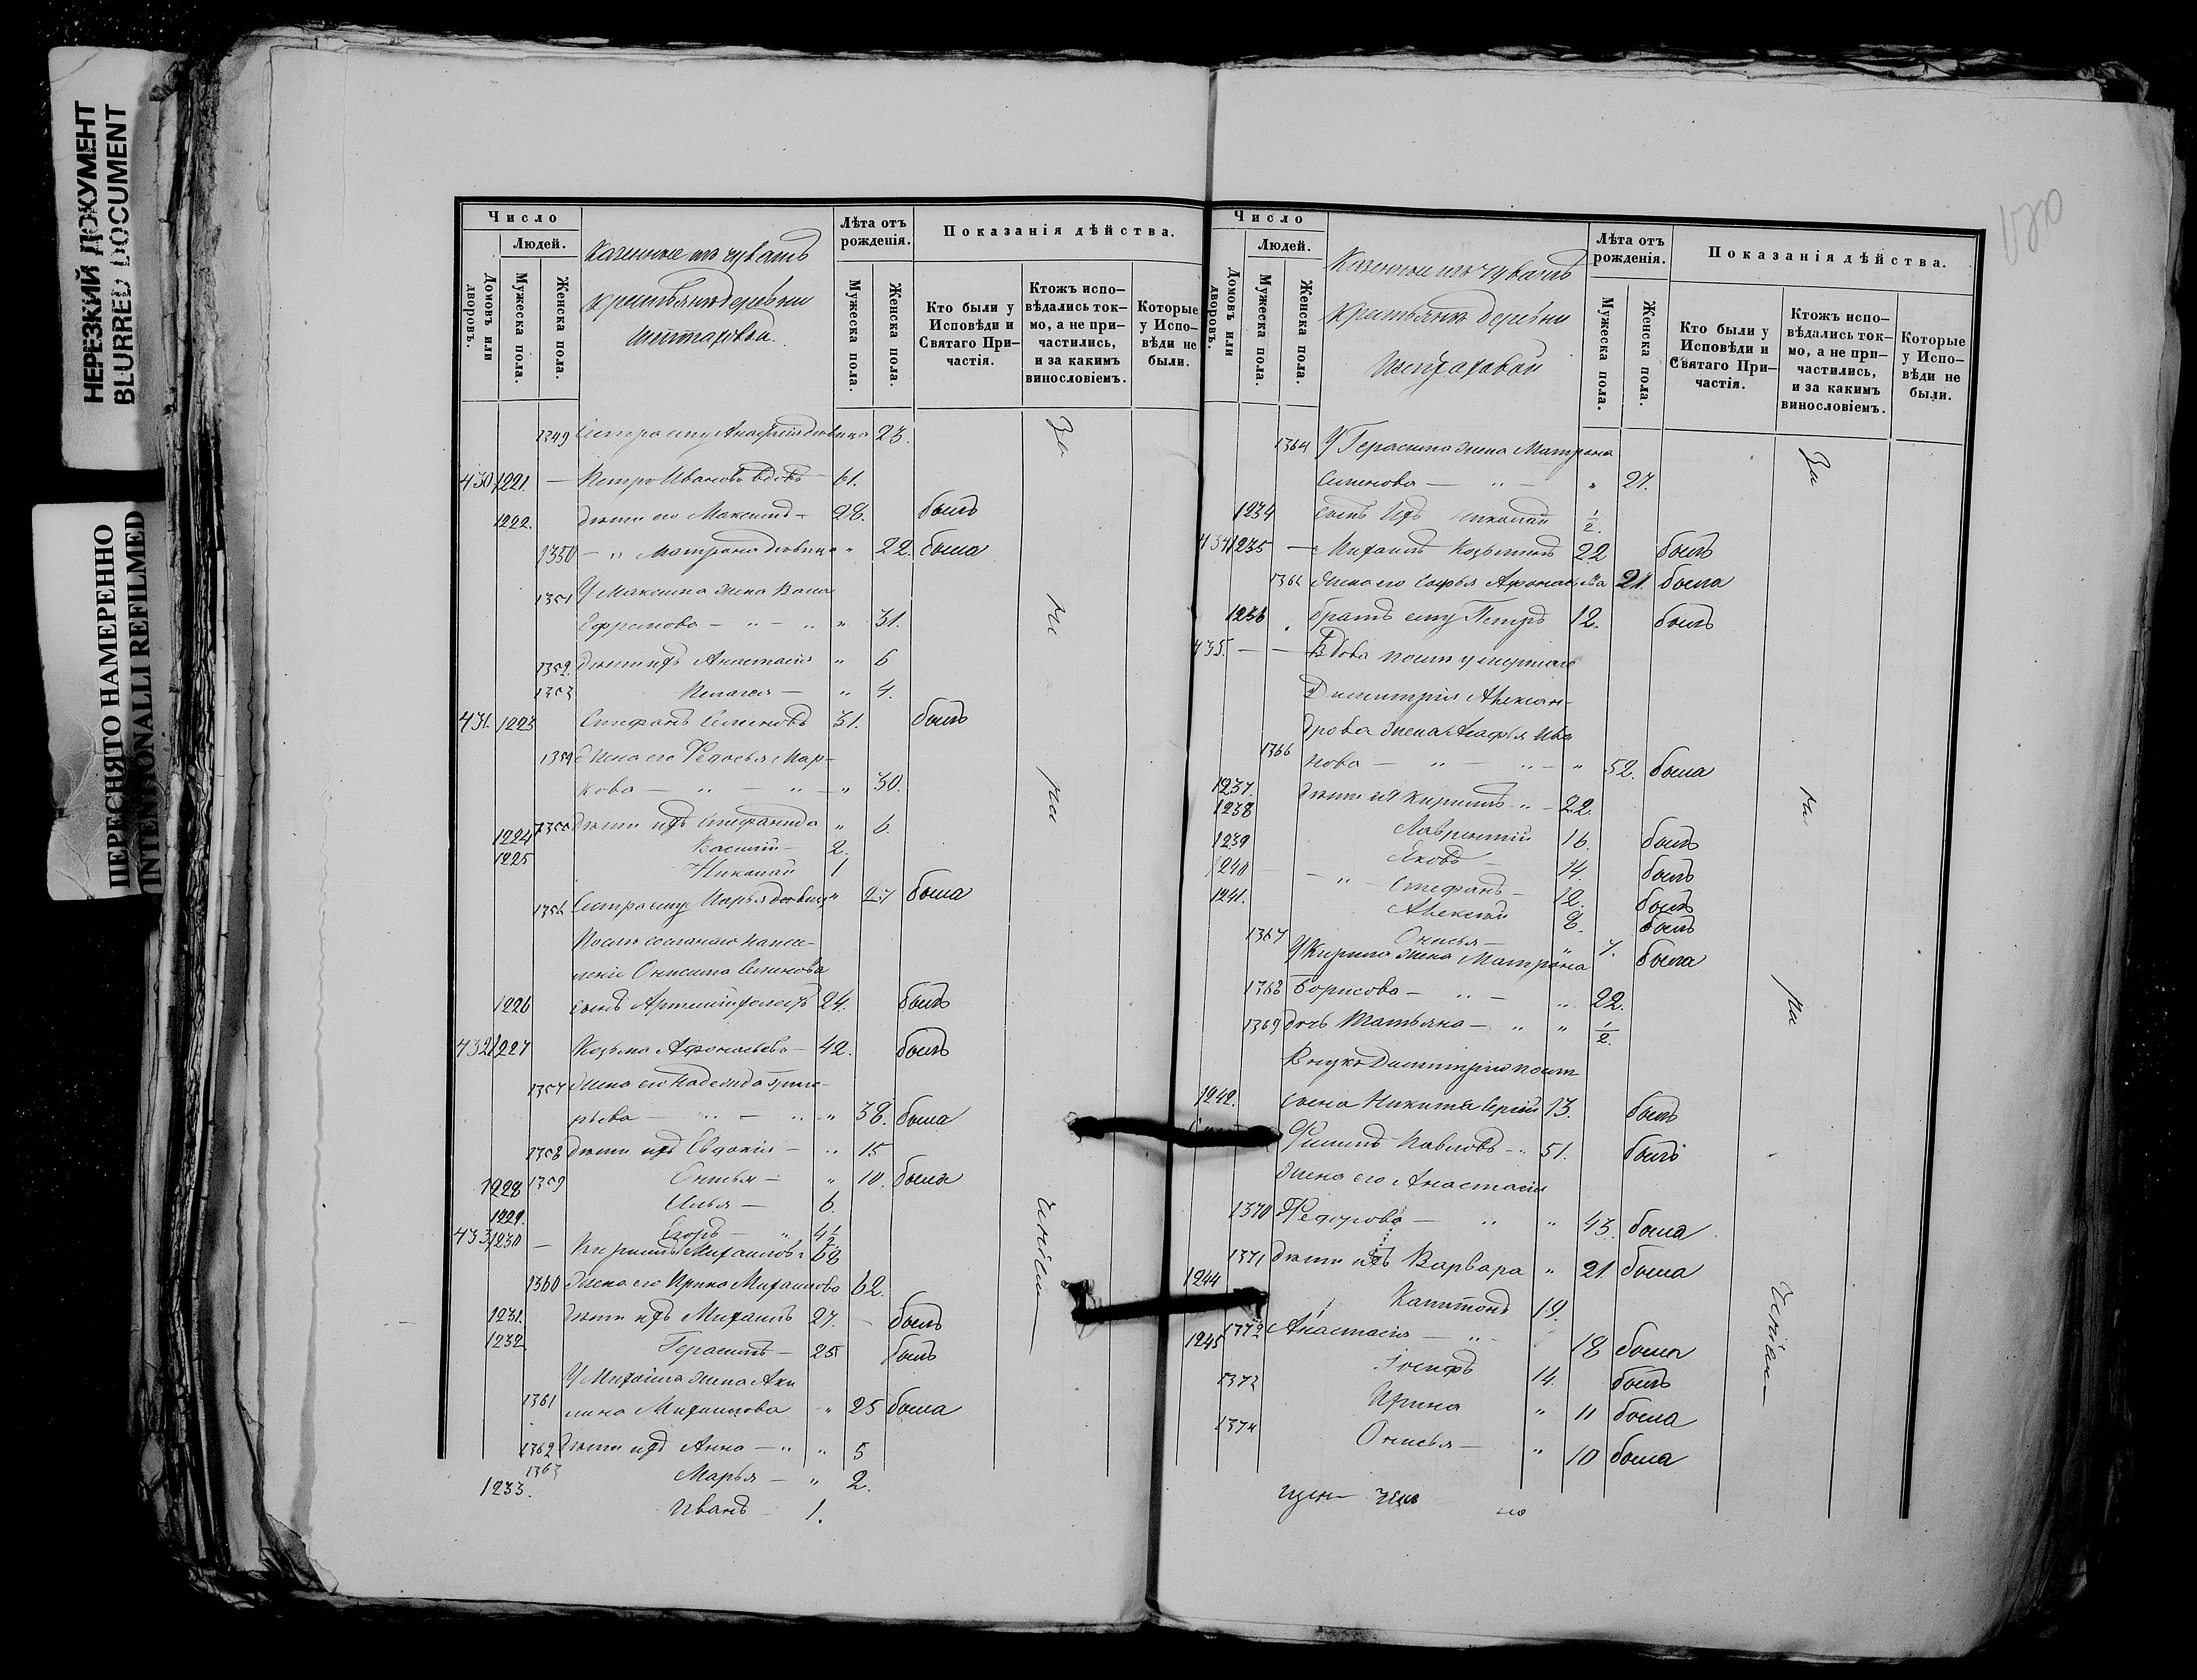 НЕРЕЗКИЙ ДОКУМЕНТ
BLURRED DOCUMENT
ПЕРЕСНЯТО НАМЕРЕННО
INTENTIONALLI REFILMED
Число
Людей.
Домовъ или дворовъ.
Мужеска пола.
Женска пола.
Казенные изъ чувашъ
крестьянъ деревни
Лѣта отъ рожденія.
Мужеска пола.
Женска пола.
Показанія дѣйства.
Кто были у Исповѣди и Святаго Причастія.
Ктожъ исповѣдались токмо, а не причастились, и за какимъ винословіемъ.
Которые у Исповѣди не были.
1349 Сестра ему Анастасія дѣвица 23.
430 1221. — Петръ Ивановъ вдовъ — 61.
1222. дѣти его Максимъ — 28. былъ
1350 — " Матрона дѣвица " 22. была
1351 У Максима жена Васса
Ефремова — " — " " 31.
1352. дѣти ихъ Анастасія " 6
1353 Пелагея — " 4.
431. 1223 Стефанъ Семеновъ 31. былъ
1354 жена его Федосья Мар-
кова — " — " — " 30.
1355 дѣти ихъ Степанида " 6.
1224 Василій — 2.
1225 Николай 1
1356 Сестра ему Марья дѣвица " 27 была
Послѣ сосланаго на посе-
леніе Онисима Семенова
1226 сынъ Артемій холостъ 24. былъ
432 1227 Козьма Афонасьевъ — 42. былъ
1357 жена его Надежда Григо-
рьева — " — " — " 38. была
1358 дѣти ихъ Евдокія — " 15
1359 Онисья — " 10. была
1228 Илья — 6.
1229. Егоръ — " 4½
433 1230 — Кирилъ Михаиловъ 62
1360 жена его Ирина Михаилова 62.
1231. дѣти ихъ Михаилъ 27. — былъ
1232 Герасимъ — 25 былъ
У Михаила жена Аки
1361 лина Михаилова " 25 была
1362 дѣти ихъ Анна — " " 5
1363 Марья — " 2.
1233. Иванъ — 1.
За
не
на
Число
Людей.
Домовъ или дворовъ.
Мужеска пола.
Женска пола.
Казенные изъ чувашъ
крестьянъ деревни
Лѣта отъ рожденія.
Мужеска пола.
Женска пола.
Показанія дѣйства.
Кто были у Исповѣди и Святаго Причастія.
Ктожъ исповѣдались токмо, а не причастились, и за какимъ винословіемъ.
Которые у Исповѣди не были.
1364 У Герасима жена Матрона
Семенова — " — " 27.
1234 сынъ ихъ Николай ½.
434 1235 — Михаилъ Козьминъ 22 былъ
1365 жена его Софья Афонасьева 21. была
1236 братъ ему Петръ 12. былъ
435. — — Вдова послѣ умершаго
Димитрія Алексан-
дрова жена Агафья Ива
1366 нова — " — " — " 52. была
1237. дѣти ея Кирилъ " — 22.
1238 Лаврентій 16. былъ
1239 Яковъ — 14. былъ
1240 — " — Стефанъ — 12. былъ
1241. Алексѣй 8. былъ
1367 Онисья — " 7. была
У Кирила жена Матрона
1368 Борисова — " — " 22.
1369 дочь Татьяна — " " ½.
Внукъ Димитрію послѣ
1242. сына Никиты Сергій 13. былъ
Филипъ Павловъ — " 51. былъ
жена его Анастасія
1370 Федорова — " " 43. была
1371 дѣти ихъ Варвара " 21 была
1244 Капитонъ 19.
1372 Анастасія — " — 18 была
1245 Іосифъ 14. былъ
1373 Ирина " 11 была
1374 Онисья — " 10 была
За
не
на